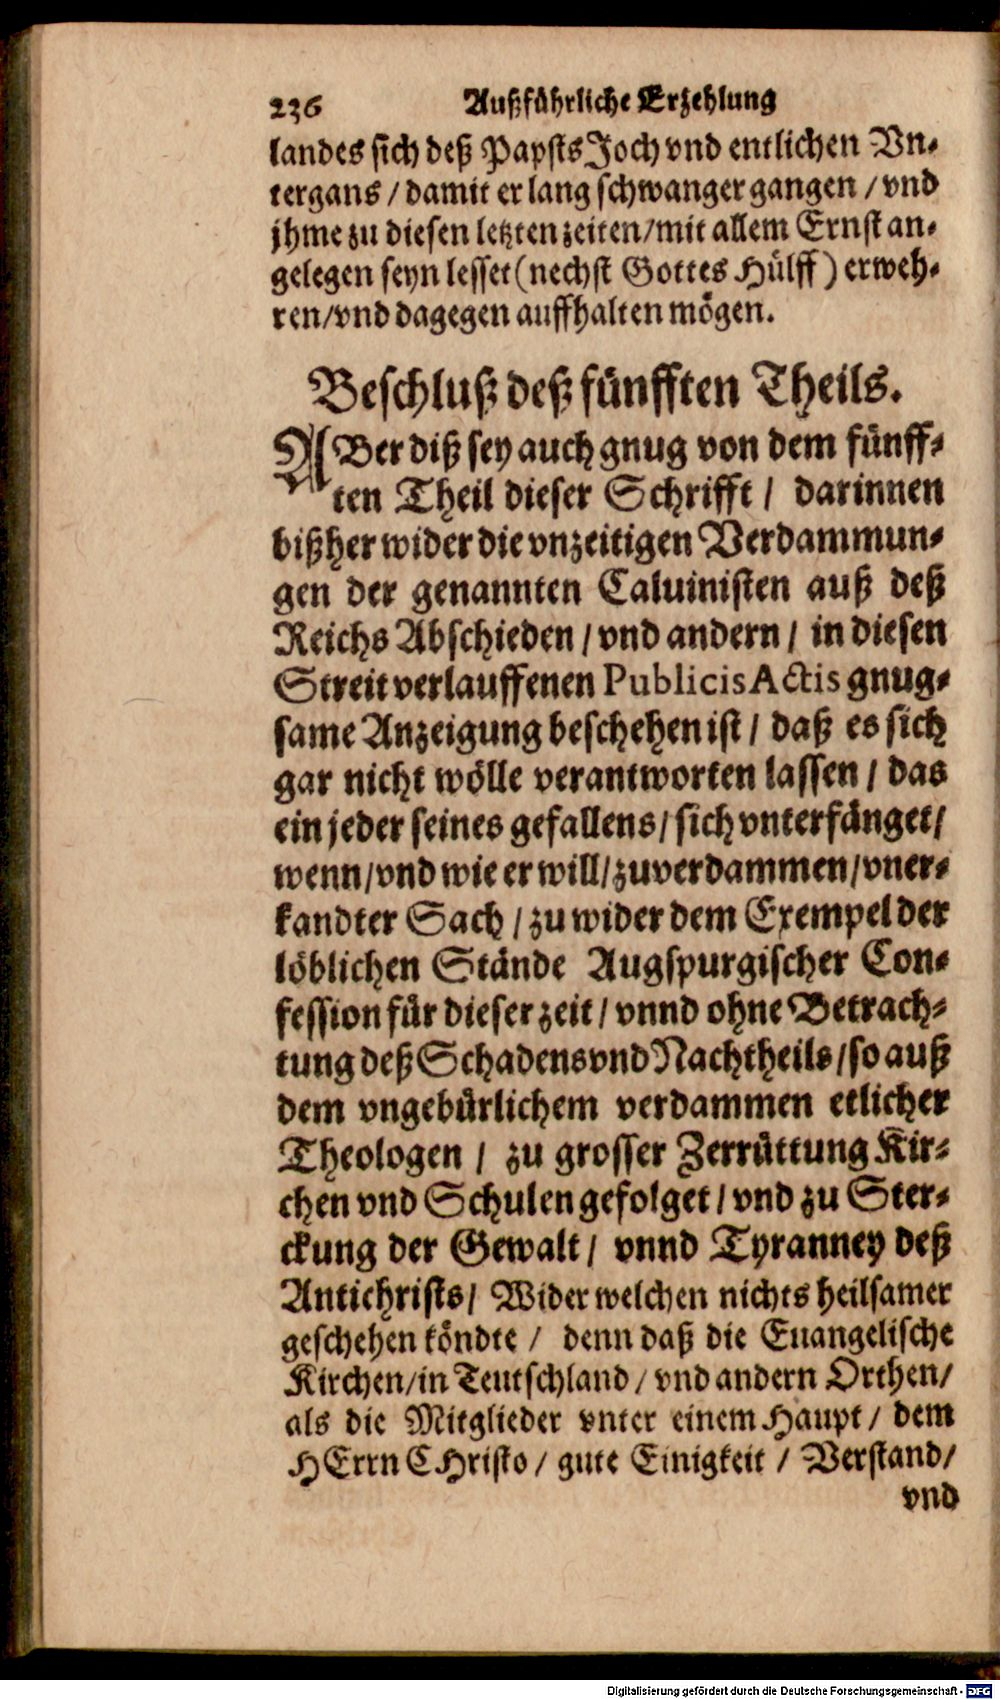 236 Außführliche Erzehlung
landes sich deß Papsts Joch vnd entlichen Vn-
tergans / damit er lang schwanger gangen / vnd
jhme zu diesen letzten zeiten / mit allem Ernst an-
gelegen seyn lesset (nechst Gottes Hülff) erweh-
ren / vnd dagegen auffhalten mögen.
Beschluß deß fünfften Theils.
ABer diß sey auch gnug von dem fünff-
ten Theil dieser Schrifft / darinnen
bißher wider die vnzeitigen Verdammun-
gen der genannten Caluinisten auß deß
Reichs Abschieden / vnd andern / in diesen
Streit verlauffenen Publicis Actis gnug-
same Anzeigung beschehen ist / daß es sich
gar nicht wölle verantworten lassen / das
ein jeder seines gefallens / sich vnterfänget /
wenn / vnd wie er will / zuverdammen / vner-
kandter Sach / zu wider dem Exempel der
löblichen Stände Augspurgischer Con-
fession für dieser zeit / vnnd ohne Betrach-
tung deß Schadens vnd Nachtheils / so auß
dem vngebürlichem verdammen etlicher
Theologen / zu grosser Zerrüttung Kir-
chen vnd Schulen gefolget / vnd zu Ster-
ckung der Gewalt / vnnd Tyranney deß
Antichrists / Wider welchen nichts heilsamer
geschehen köndte / denn daß die Euangelische
Kirchen / in Teutschland / vnd andern Orthen /
als die Mitglieder vnter einem Haupt / dem
HErrn CHristo / gute Einigkeit / Verstand /
vnd
Digitalisierung gefördert durch die Deutsche Forschungsgemeinschaft - DFG